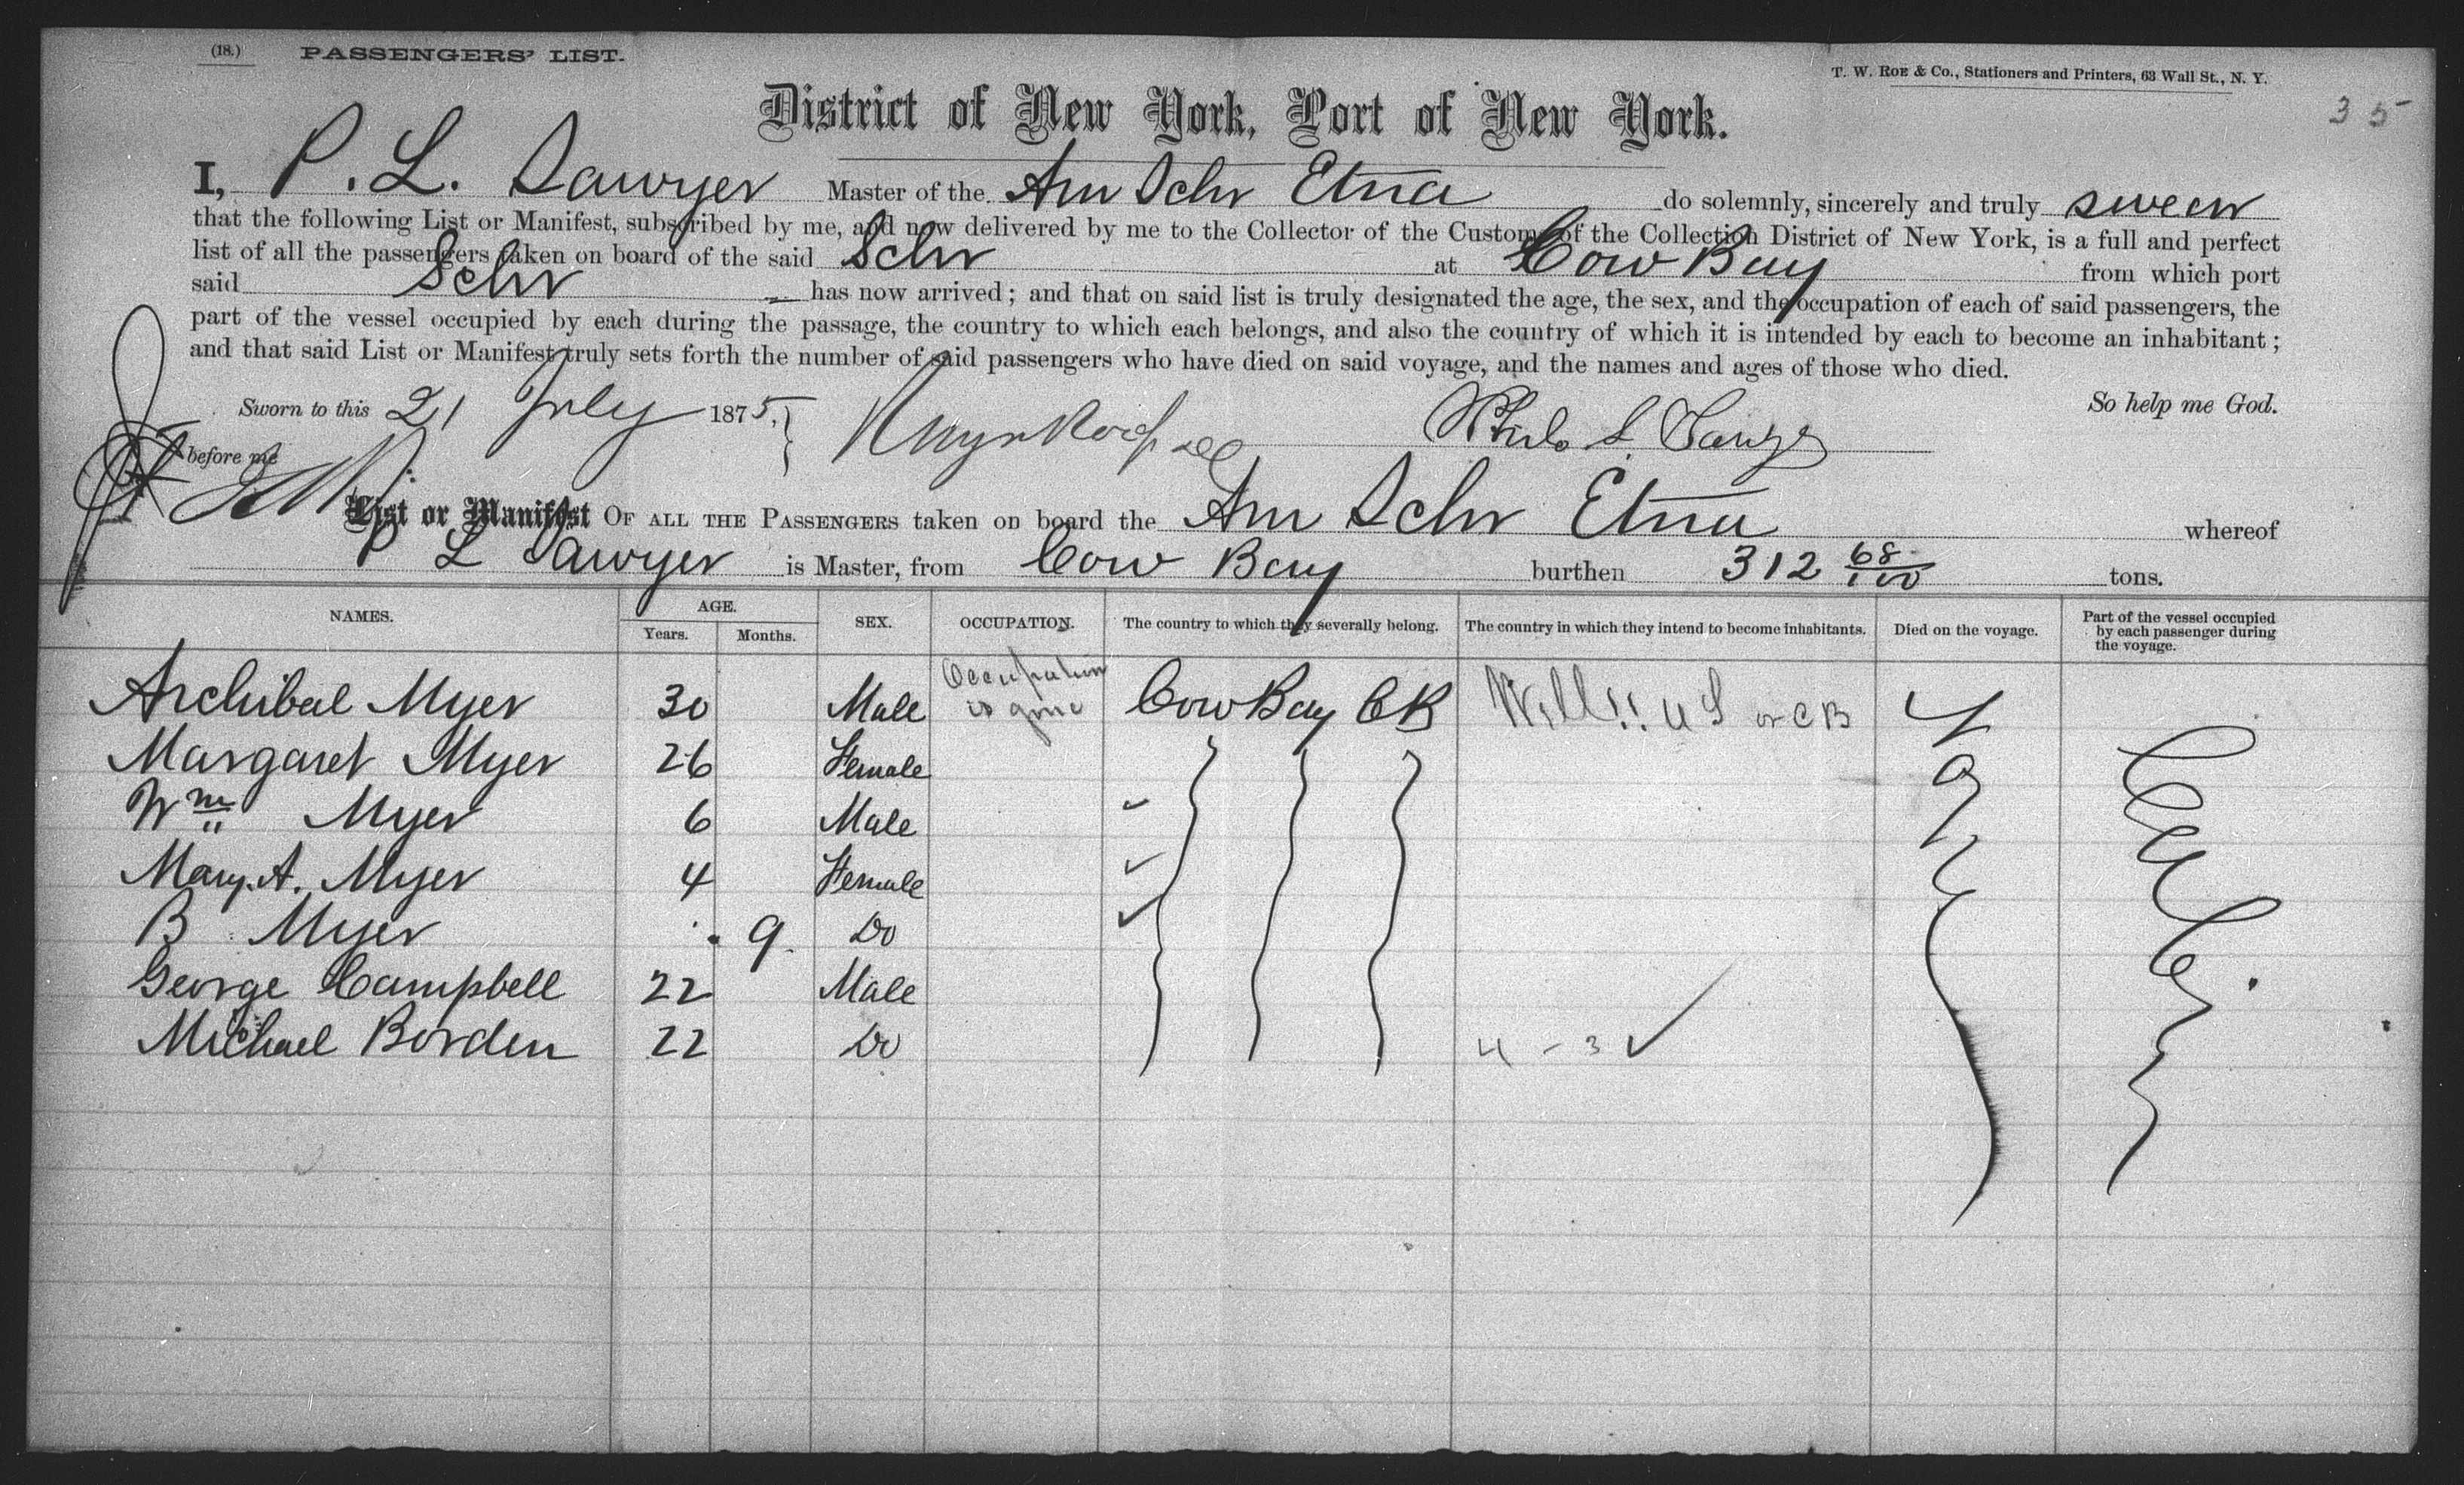 (18.) PASSENGERS' LIST.
T. W. ROE & Co., Stationers and Printers, 63 Wall St., N. Y.
35
District of New York, Port of New York.
I, P. L. Sawyer Master of the Am Schr Etna do solemnly, sincerely and truly swear
that the following List or Manifest, subscribed by me, and now delivered by me to the Collector of the Customs of the Collection District of New York, is a full and perfect
list of all the passengers taken on board of the said Schr at Cow Bay from which port
said Schr has now arrived; and that on said list is truly designated the age, the sex, and the occupation of each of said passengers, the
part of the vessel occupied by each during the passage, the country to which each belongs, and also the country of which it is intended by each to become an inhabitant;
and that said List or Manifest truly sets forth the number of said passengers who have died on said voyage, and the names and ages of those who died.
Sworn to this 21 July 1875, So help me God.
before me
List or Manifest OF ALL THE PASSENGERS taken on board the Am Schr Etna whereof
P L Sawyer is Master, from Cow Bay burthen 312 68/100 tons.
NAMES. AGE. Years. Months. SEX. OCCUPATION. The country to which they severally belong. The country in which they intend to become inhabitants. Died on the voyage. Part of the vessel occupied by each passenger during the voyage.
Archibal Myer 30 Male Occupation is Cow Bay CB US or CB
Margaret Myer 26 Female
Wm Myer 6 Male
Mary. A. Myer 4 Female
B Myer 9 Do
George Campbell 22 Male
Michael Borden 22 Do